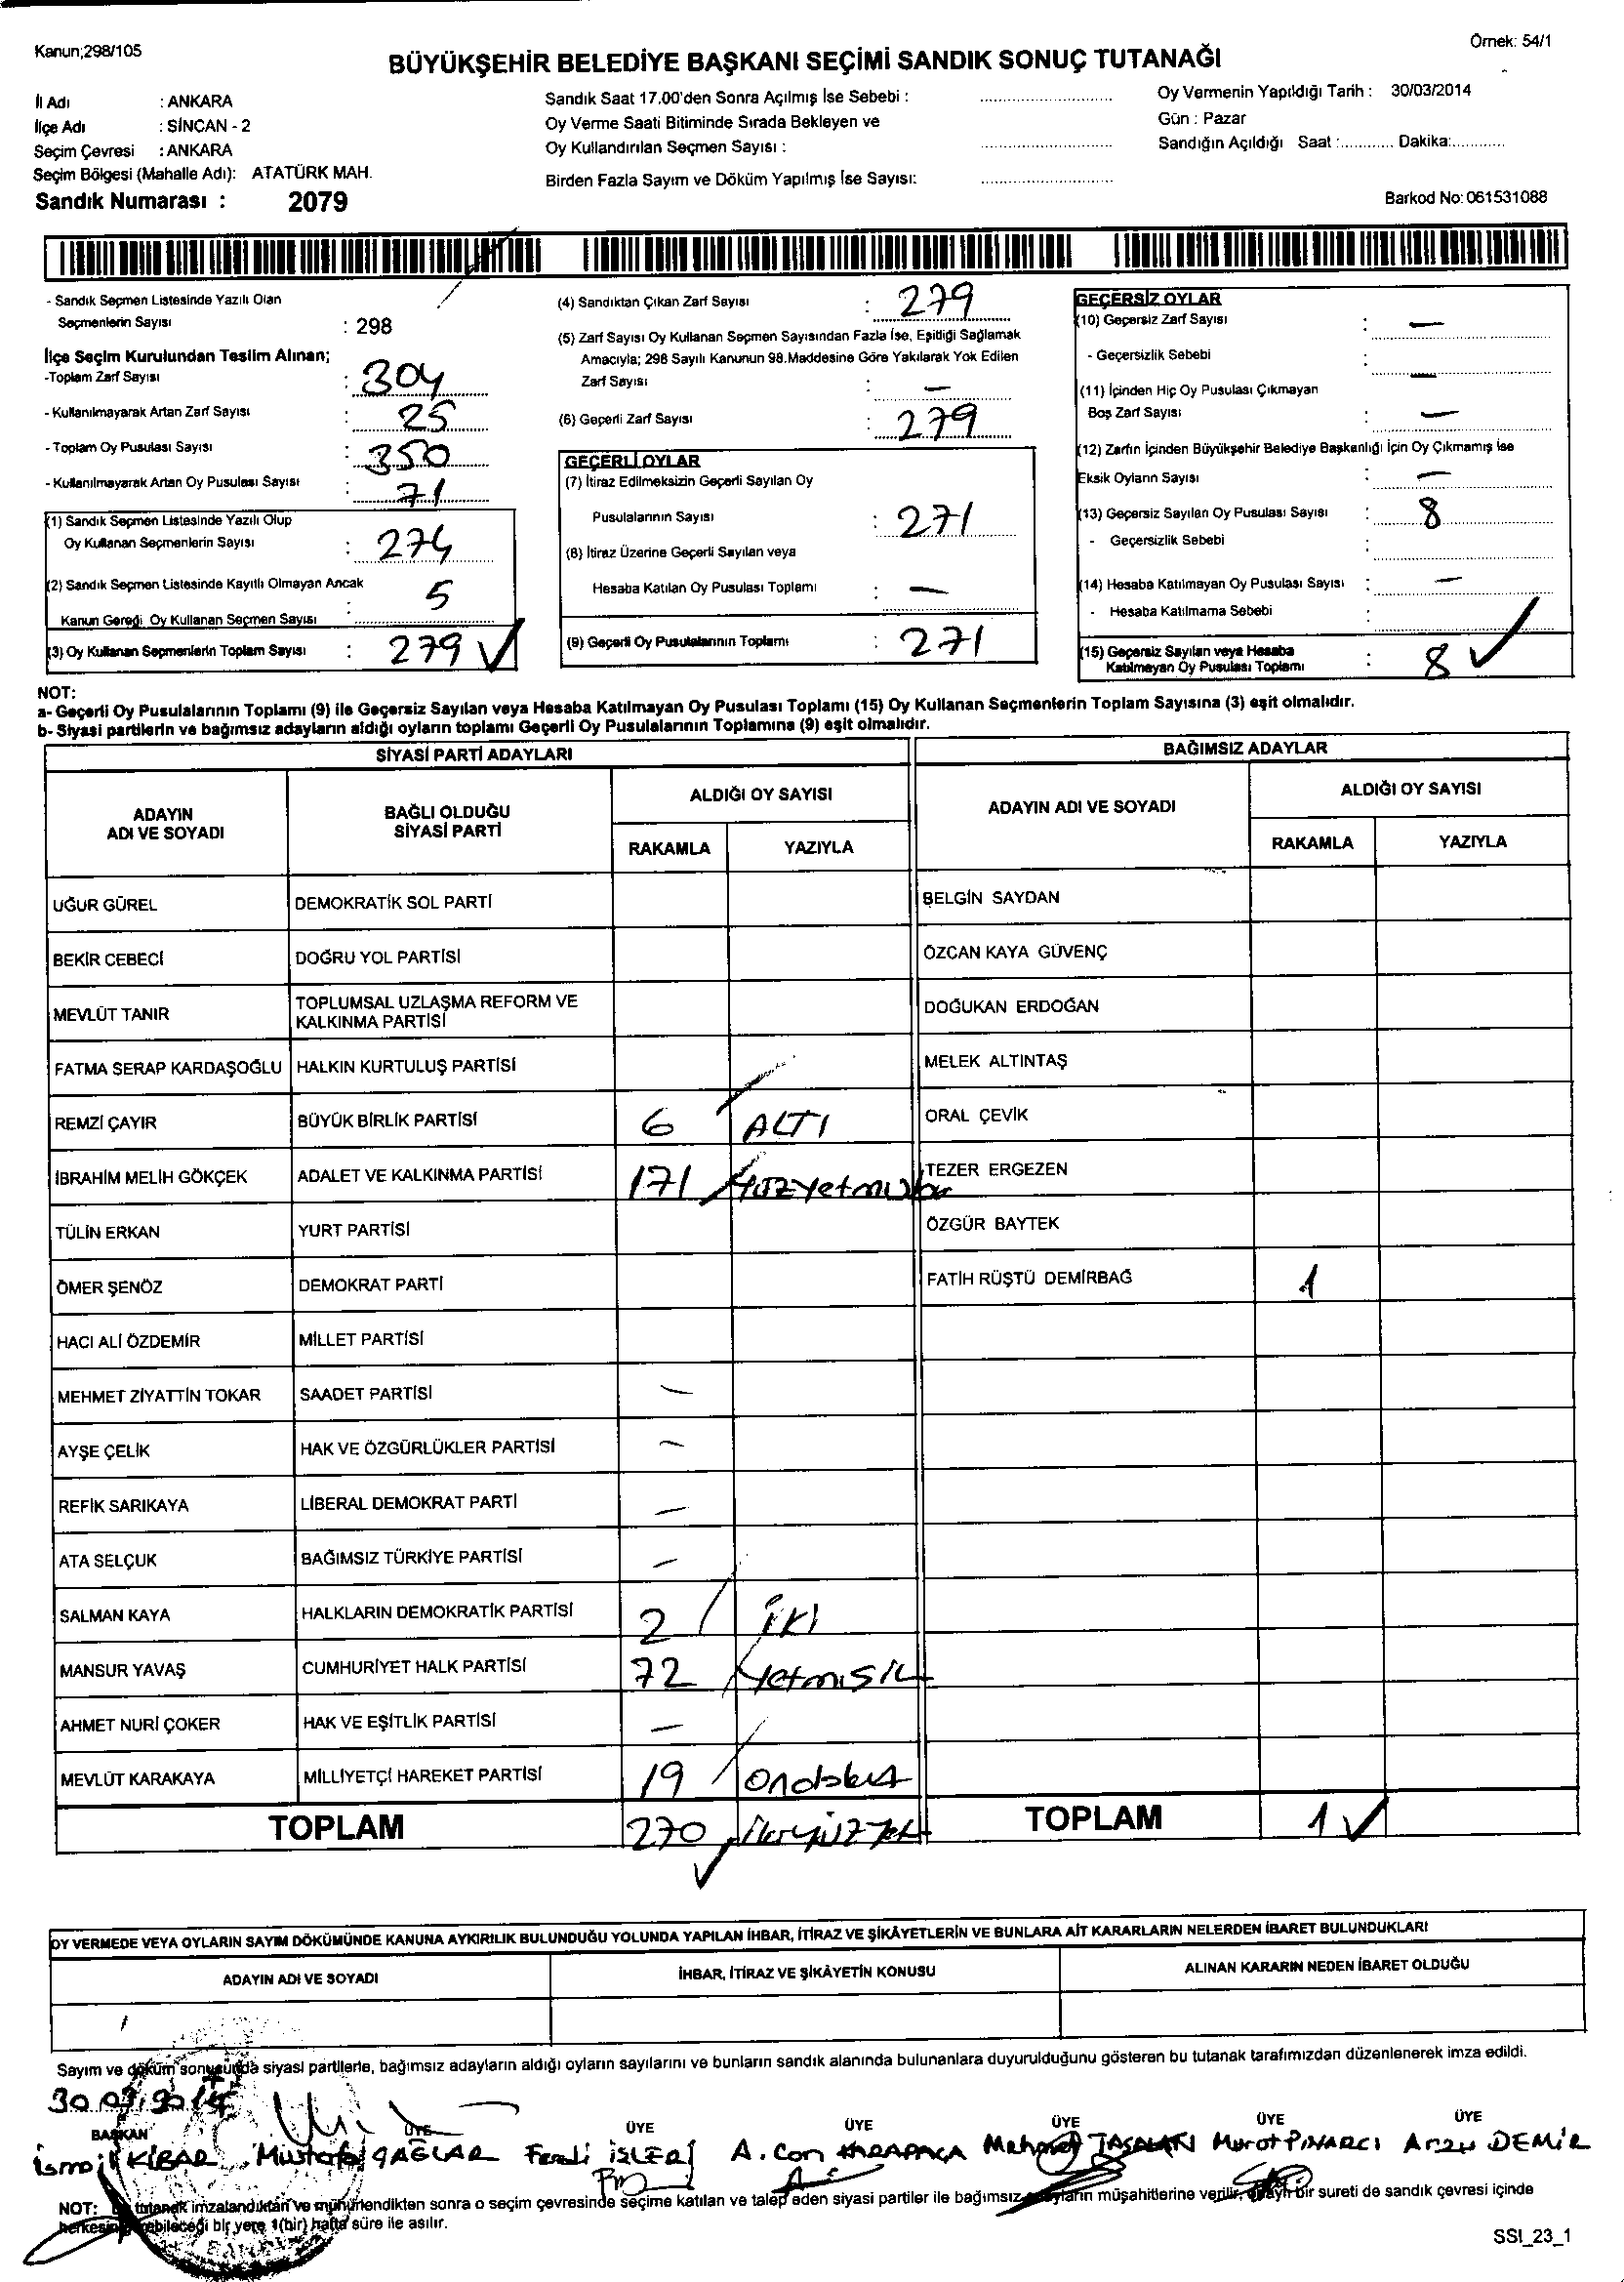 Kanun;298/105
Örnek: 54/1
BÜYÜKŞEHİR BELEDİYE BAŞKANI SEÇİMİ SANDIK SONUÇ TUTANAĞI
İl Adı : ANKARA
İlçe Adı : SİNCAN - 2
Seçim Çevresi : ANKARA
Seçim Bölgesi (Mahalle Adı): ATATÜRK MAH.
Sandık Numarası : 2079
Sandık Saat 17.00'den Sonra Açılmış İse Sebebi :
Oy Verme Saati Bitiminde Sırada Bekleyen ve
Oy Kullandırılan Seçmen Sayısı :
Birden Fazla Sayım ve Döküm Yapılmış İse Sayısı:
Oy Vermenin Yapıldığı Tarih : 30/03/2014
Gün : Pazar
Sandığın Açıldığı Saat :............ Dakika:............
Barkod No: 061531088
- Sandık Seçmen Listesinde Yazılı Olan
Seçmenlerin Sayısı : 298
İlçe Seçim Kurulundan Teslim Alınan;
-Toplam Zarf Sayısı : 304
- Kullanılmayarak Artan Zarf Sayısı : 25
- Toplam Oy Pusulası Sayısı : 350
- Kullanılmayarak Artan Oy Pusulası Sayısı : 71
(1) Sandık Seçmen Listesinde Yazılı Olup
Oy Kullanan Seçmenlerin Sayısı : 274
(2) Sandık Seçmen Listesinde Kayıtlı Olmayan Ancak
Kanun Gereği Oy Kullanan Seçmen Sayısı : 5
(3) Oy Kullanan Seçmenlerin Toplam Sayısı : 279
(4) Sandıktan Çıkan Zarf Sayısı : 279
(5) Zarf Sayısı Oy Kullanan Seçmen Sayısından Fazla İse, Eşitliği Sağlamak
Amacıyla; 298 Sayılı Kanunun 98.Maddesine Göre Yakılarak Yok Edilen
Zarf Sayısı : —
(6) Geçerli Zarf Sayısı : 279
GEÇERLİ OYLAR
(7) İtiraz Edilmeksizin Geçerli Sayılan Oy
Pusulalarının Sayısı : 271
(8) İtiraz Üzerine Geçerli Sayılan veya
Hesaba Katılan Oy Pusulası Toplamı : —
(9) Geçerli Oy Pusulalarının Toplamı : 271
GEÇERSİZ OYLAR
(10) Geçersiz Zarf Sayısı : —
- Geçersizlik Sebebi : —
(11) İçinden Hiç Oy Pusulası Çıkmayan
Boş Zarf Sayısı : —
(12) Zarfın İçinden Büyükşehir Belediye Başkanlığı İçin Oy Çıkmamış İse
Eksik Oyların Sayısı : —
(13) Geçersiz Sayılan Oy Pusulası Sayısı : 8
- Geçersizlik Sebebi :
(14) Hesaba Katılmayan Oy Pusulası Sayısı : —
- Hesaba Katılmama Sebebi :
(15) Geçersiz Sayılan veya Hesaba
Katılmayan Oy Pusulası Toplamı : 8
NOT:
a- Geçerli Oy Pusulalarının Toplamı (9) ile Geçersiz Sayılan veya Hesaba Katılmayan Oy Pusulası Toplamı (15) Oy Kullanan Seçmenlerin Toplam Sayısına (3) eşit olmalıdır.
b- Siyasi partilerin ve bağımsız adayların aldığı oyların toplamı Geçerli Oy Pusulalarının Toplamına (9) eşit olmalıdır.
SİYASİ PARTİ ADAYLARI
ADAYIN
ADI VE SOYADI
BAĞLI OLDUĞU
SİYASİ PARTİ
ALDIĞI OY SAYISI
RAKAMLA YAZIYLA
UĞUR GÜREL DEMOKRATİK SOL PARTİ
BEKİR CEBECİ DOĞRU YOL PARTİSİ
MEVLÜT TANIR TOPLUMSAL UZLAŞMA REFORM VE
KALKINMA PARTİSİ
FATMA SERAP KARDAŞOĞLU HALKIN KURTULUŞ PARTİSİ
REMZİ ÇAYIR BÜYÜK BİRLİK PARTİSİ 6 ALTI
İBRAHİM MELİH GÖKÇEK ADALET VE KALKINMA PARTİSİ 171
TÜLİN ERKAN YURT PARTİSİ
ÖMER ŞENÖZ DEMOKRAT PARTİ
HACI ALİ ÖZDEMİR MİLLET PARTİSİ
MEHMET ZİYATTİN TOKAR SAADET PARTİSİ —
AYŞE ÇELİK HAK VE ÖZGÜRLÜKLER PARTİSİ —
REFİK SARIKAYA LİBERAL DEMOKRAT PARTİ —
ATA SELÇUK BAĞIMSIZ TÜRKİYE PARTİSİ —
SALMAN KAYA HALKLARIN DEMOKRATİK PARTİSİ 2 İKİ
MANSUR YAVAŞ CUMHURİYET HALK PARTİSİ 72
AHMET NURİ ÇOKER HAK VE EŞİTLİK PARTİSİ —
MEVLÜT KARAKAYA MİLLİYETÇİ HAREKET PARTİSİ 19
TOPLAM 270
BAĞIMSIZ ADAYLAR
ADAYIN ADI VE SOYADI
ALDIĞI OY SAYISI
RAKAMLA YAZIYLA
BELGİN SAYDAN
ÖZCAN KAYA GÜVENÇ
DOĞUKAN ERDOĞAN
MELEK ALTINTAŞ
ORAL ÇEVİK
TEZER ERGEZEN
ÖZGÜR BAYTEK
FATİH RÜŞTÜ DEMİRBAĞ 1
TOPLAM 1
OY VERMEDE VEYA OYLARIN SAYIM DÖKÜMÜNDE KANUNA AYKIRILIK BULUNDUĞU YOLUNDA YAPILAN İHBAR, İTİRAZ VE ŞİKÂYETLERİN VE BUNLARA AİT KARARLARIN NELERDEN İBARET BULUNDUKLARI
ADAYIN ADI VE SOYADI İHBAR, İTİRAZ VE ŞİKÂYETİN KONUSU ALINAN KARARIN NEDEN İBARET OLDUĞU
Sayım ve döküm sonucunda siyasi partilerle, bağımsız adayların aldığı oyların sayılarını ve bunların sandık alanında bulunanlara duyurulduğunu gösteren bu tutanak tarafımızdan düzenlenerek imza edildi.
30.03.2014
BAŞKAN ÜYE ÜYE ÜYE ÜYE ÜYE ÜYE
İsmail KİBAR Mustafa ÇAĞLAR İŞLER A. Can Mehmet TAŞALAN Murat PINARCI Arzu DEMİR
NOT: Bu tutanak imzalandıktan ve mühürlendikten sonra o seçim çevresinde seçime katılan ve talep eden siyasi partiler ile bağımsız adayların müşahitlerine verilir, onaylı bir sureti de sandık çevresi içinde
herkesin görebileceği bir yere 1(bir) hafta süre ile asılır.
SSI_23_1